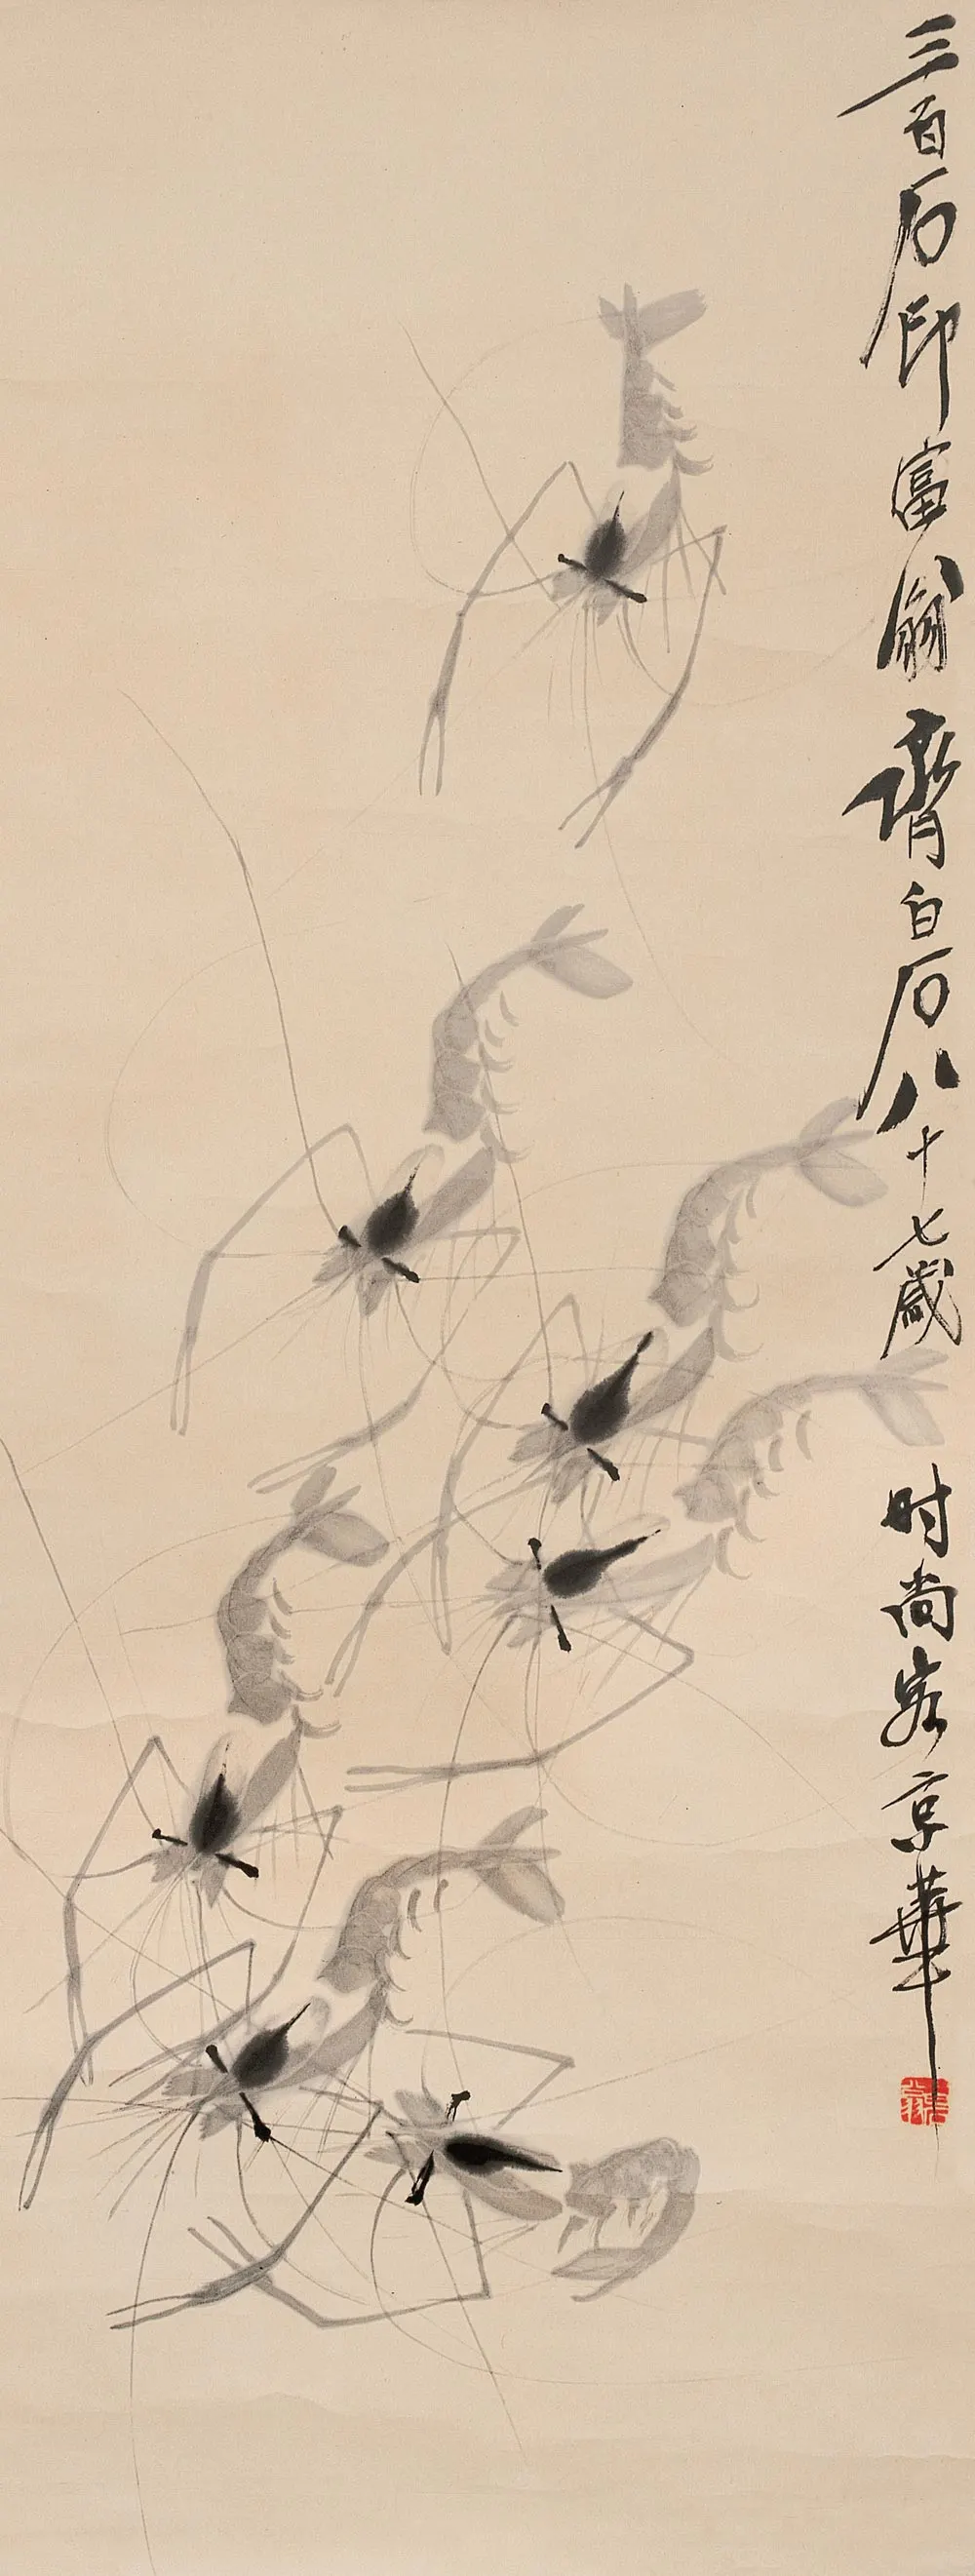 三百石印富翁齊白石八十七歲时尚客京華